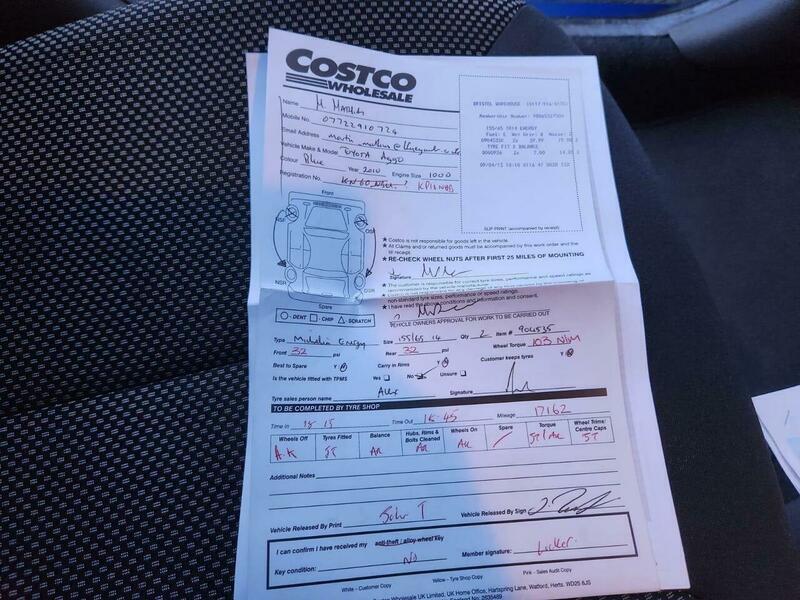 COSTCO
WHOLESALE
Name M. Mathias
Mobile No. 07722910724
Email Address
Vehicle Make & Model TOYOTA AYGO
Colour Blue Year 2010 Engine Size 1000
Registration No.
BRISTOL WAREHOUSE
Membership Number
155/65 TR14 ENERGY
TYRE FIT & BALANCE
SLIP PRINT (accompanied by receipt)
Front
NSF
OSF
NSR
OSR
Spare
★ Costco is not responsible for goods left in the vehicle.
★ All Claims and/or returned goods must be accompanied by this work order and the
till receipt.
★ RE-CHECK WHEEL NUTS AFTER FIRST 25 MILES OF MOUNTING
Signature
★ The customer is responsible for correct tyre sizes, performance and speed ratings as
recommended by the vehicle manufacturer.
non-standard tyre sizes, performance or speed ratings.
★ I have read the above conditions and information and consent.
- DENT - CHIP - SCRATCH
VEHICLE OWNERS APPROVAL FOR WORK TO BE CARRIED OUT
Type Michelin Energy Size 155/65 14 Qty 2 Item # 904535
Front 32 psi Rear 32 psi Wheel Torque 103 N/M
Best to Spare Y N Carry in Rims Y N Customer keeps tyres Y N
Is the vehicle fitted with TPMS Yes No Unsure
Tyre sales person name Alex Signature
TO BE COMPLETED BY TYRE SHOP
Time in 15 Time Out 45 Mileage 17162
Wheels Off Tyres Fitted Balance Hubs, Rims & Bolts Cleaned Wheels On Spare Torque Wheel Trims/ Centre Caps
A.K ST AK AK AK / ST/AK ST
Additional Notes
Vehicle Released By Print T Vehicle Released By Sign
I can confirm I have received my anti-theft / alloy wheel key
Key condition: No Member signature: Locker.
White - Customer Copy Yellow - Tyre Shop Copy Pink - Sales Audit Copy
Wholesale UK Limited, UK Home Office, Hartspring Lane, Watford, Herts. WD25 8JS